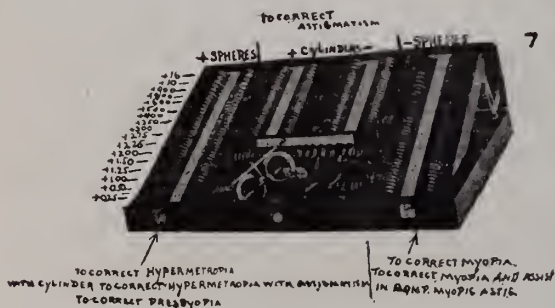 TO CORRECT
ASTIGMATISM
+ SPHERES
+ CYLINDERS −
− SPHERES
7
+16
+2.75
+2.25
+2.00
+1.50
+1.25
+1.00
+0.50
+0.25
TO CORRECT HYPERMETROPIA
WITH CYLINDER TO CORRECT HYPERMETROPIA WITH ASTIGMATISM
TO CORRECT PRESBYOPIA
TO CORRECT MYOPIA.
TO CORRECT MYOPIA AND ASSIST
IN COMP. MYOPIC ASTIG